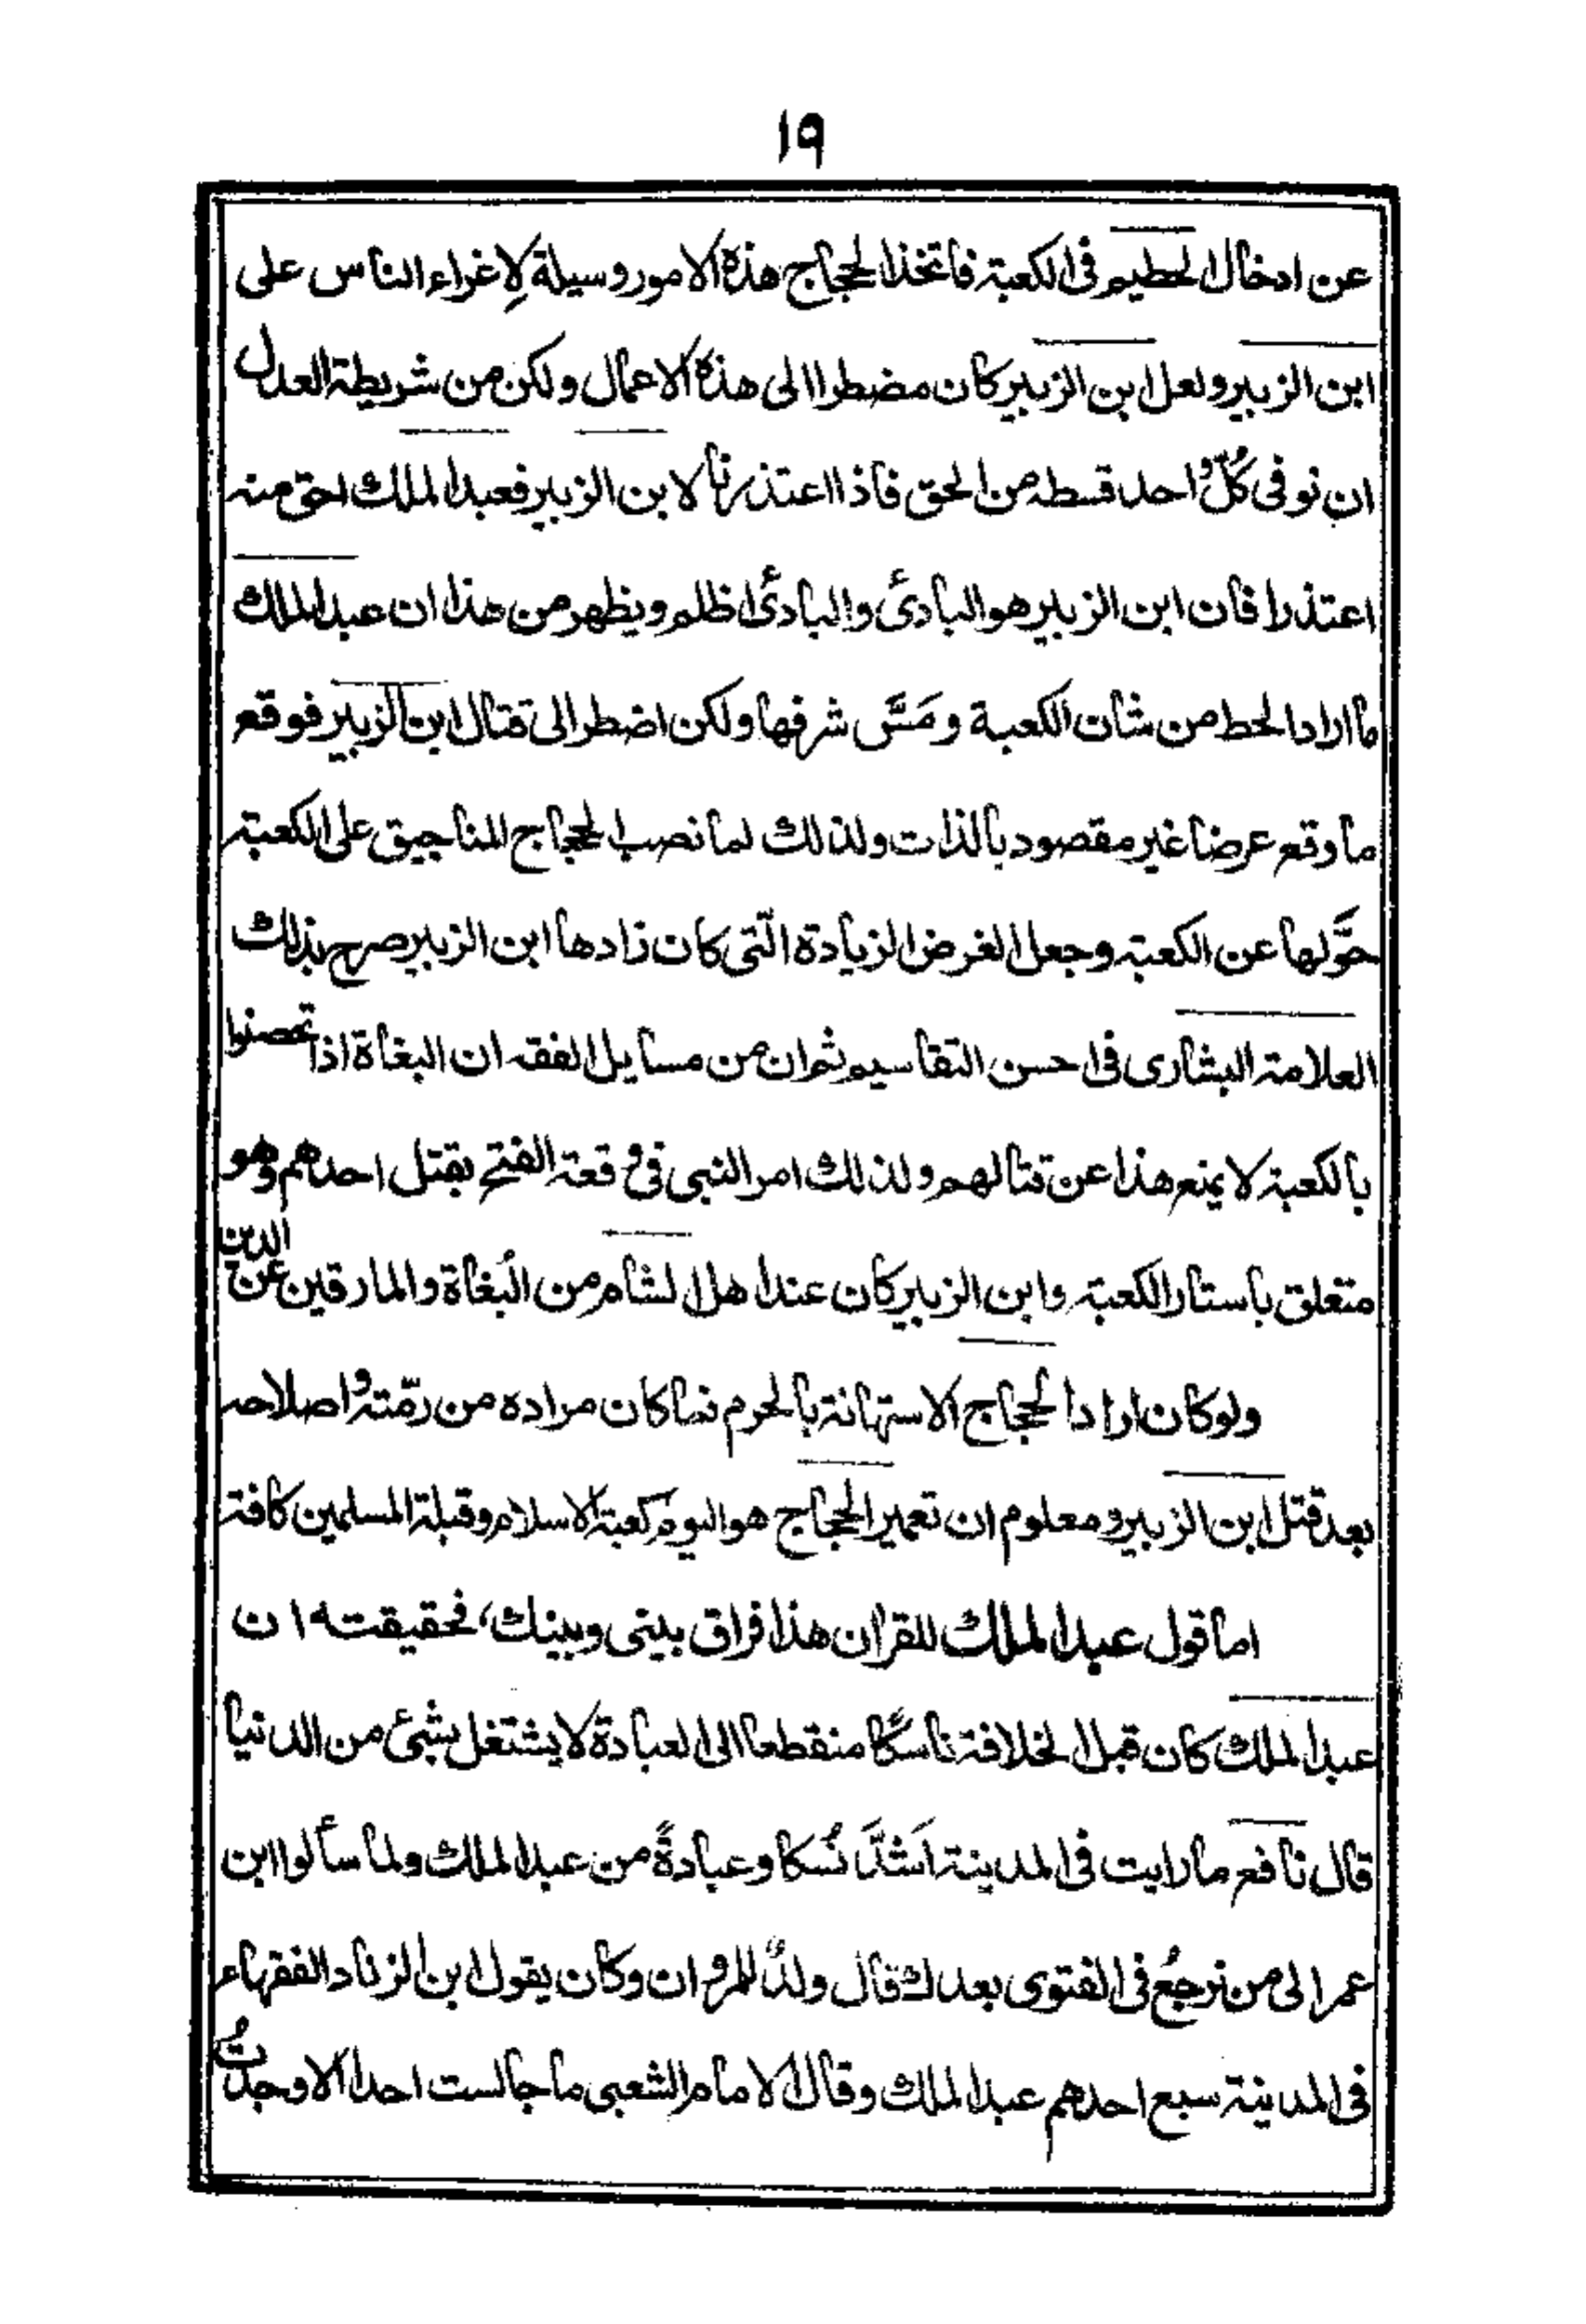 ١٩
عن ادخال الحطيم فى الكعبة فاتخذ الحجاج هذه الامور وسيلة لِاغراء الناس على
ابن الزبير ولعل ابن الزبير كان مضطرا الى هذه الاعمال ولكن من شريطة العدل
ان نوفى كُلَّ واحد قسطه من الحق فاذا اعتذرنا لابن الزبير فعبد الملك احق منه
اعتذرا فان ابن الزبير هو البادئ والبادئ اظلم ويظهر من هذا ان عبد الملك
ما اراد الحط من شان الكعبة ومَسَّ شرفها ولكن اضطر الى قتال ابن الزبير فوقع
ما وقع عرضا غير مقصود بالذات ولذلك لما نصب الحجاج المناجيق على الكعبة
حَوَّلها عن الكعبة وجعل الغرض الزيادة الّتى كان زادها ابن الزبير صرح بذلك
العلامة البشارى فى احسن التقاسيم ثم ان من مسايل الفقه ان البغاة اذا تحصنوا
بالكعبة لا يمنع هذا عن قتالهم ولذلك امر النبى فى وقعة الفتح بقتل احدهم وهو
متعلق باستار الكعبة وابن الزبير كان عند اهل الشام من البُغاة والمارقين عن الدين
ولو كان اراد الحجاج الاستهانة بالحرم فما كان مراده من رمّته واصلاحه
بعد قتل ابن الزبير ومعلوم ان تعمير الحجاج هو اليوم كعبة الاسلام وقبلة المسلمين كافة
اما قول عبد الملك للقران هذا فراق بينى وبينك، فحقيقته ان
عبد الملك كان قبل الخلافة ناسكًا منقطعا الى العبادة لا يشتغل بشئ من الدنيا
قال نافع ما رايت فى المدينة اَشَدَّ نُسكا وعبادةً من عبد الملك ولما سألوا ابن
عمر الى من نرجعُ فى الفتوى بعدك قال ولدٌ للمروان وكان يقول ابن الزناد الفقهاء
فى المدينة سبع احدهم عبد الملك وقال الامام الشعبى ما جالست احدا الا وجدتُ